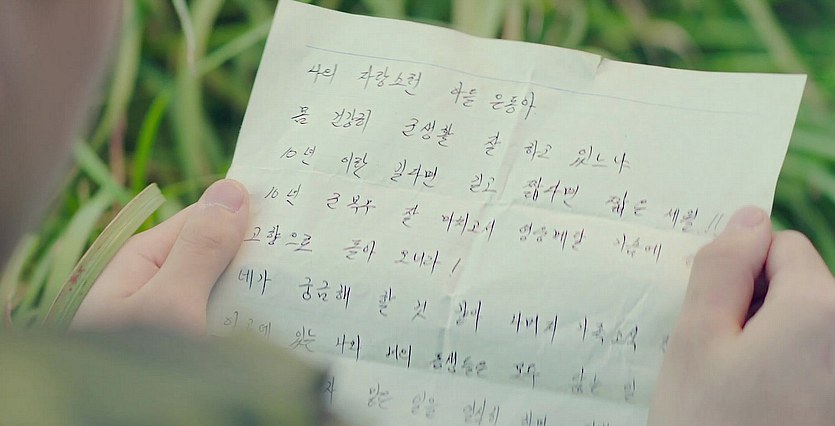 나의 자랑스런 아들 은동아
몸 건강히 군생활 잘 하고 있느냐
10년 이란 길다면 길고 짧다면 짧은 세월!!
10년 군복무 잘 마치고서 영웅메달 가슴에
고향으로 돌아 오너라!
네가 궁금해 할 것 같아 나머지 가족소식
이곳에 있는 나와 너의 동생들은 모두 맡은 일
맡은 일을 열심히